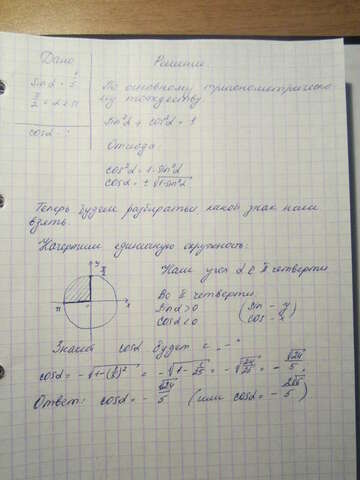 Дано
Решение
sinα = 1/5
π/2 < α < π
cosα - ?
По основному тригонометрическо-
му тождеству:
sin²α + cos²α = 1
Отсюда
cos²α = 1 - sin²α
cosα = ± √(1-sin²α)
Теперь будем разбираться какой знак нам
взять.
Начертим единичную окружность:
y
π/2
π
x
Наш угол α ∈ II четверти
Во II четверти
sinα > 0
cosα < 0
(sin - y
cos - x)
Значит cosα будет с "-"
cosα = - √(1-(1/5)²) = - √(1-1/25) = - √(24/25) = - √24/5
Ответ: cosα = - √24/5 (или cosα = - 2√6/5)